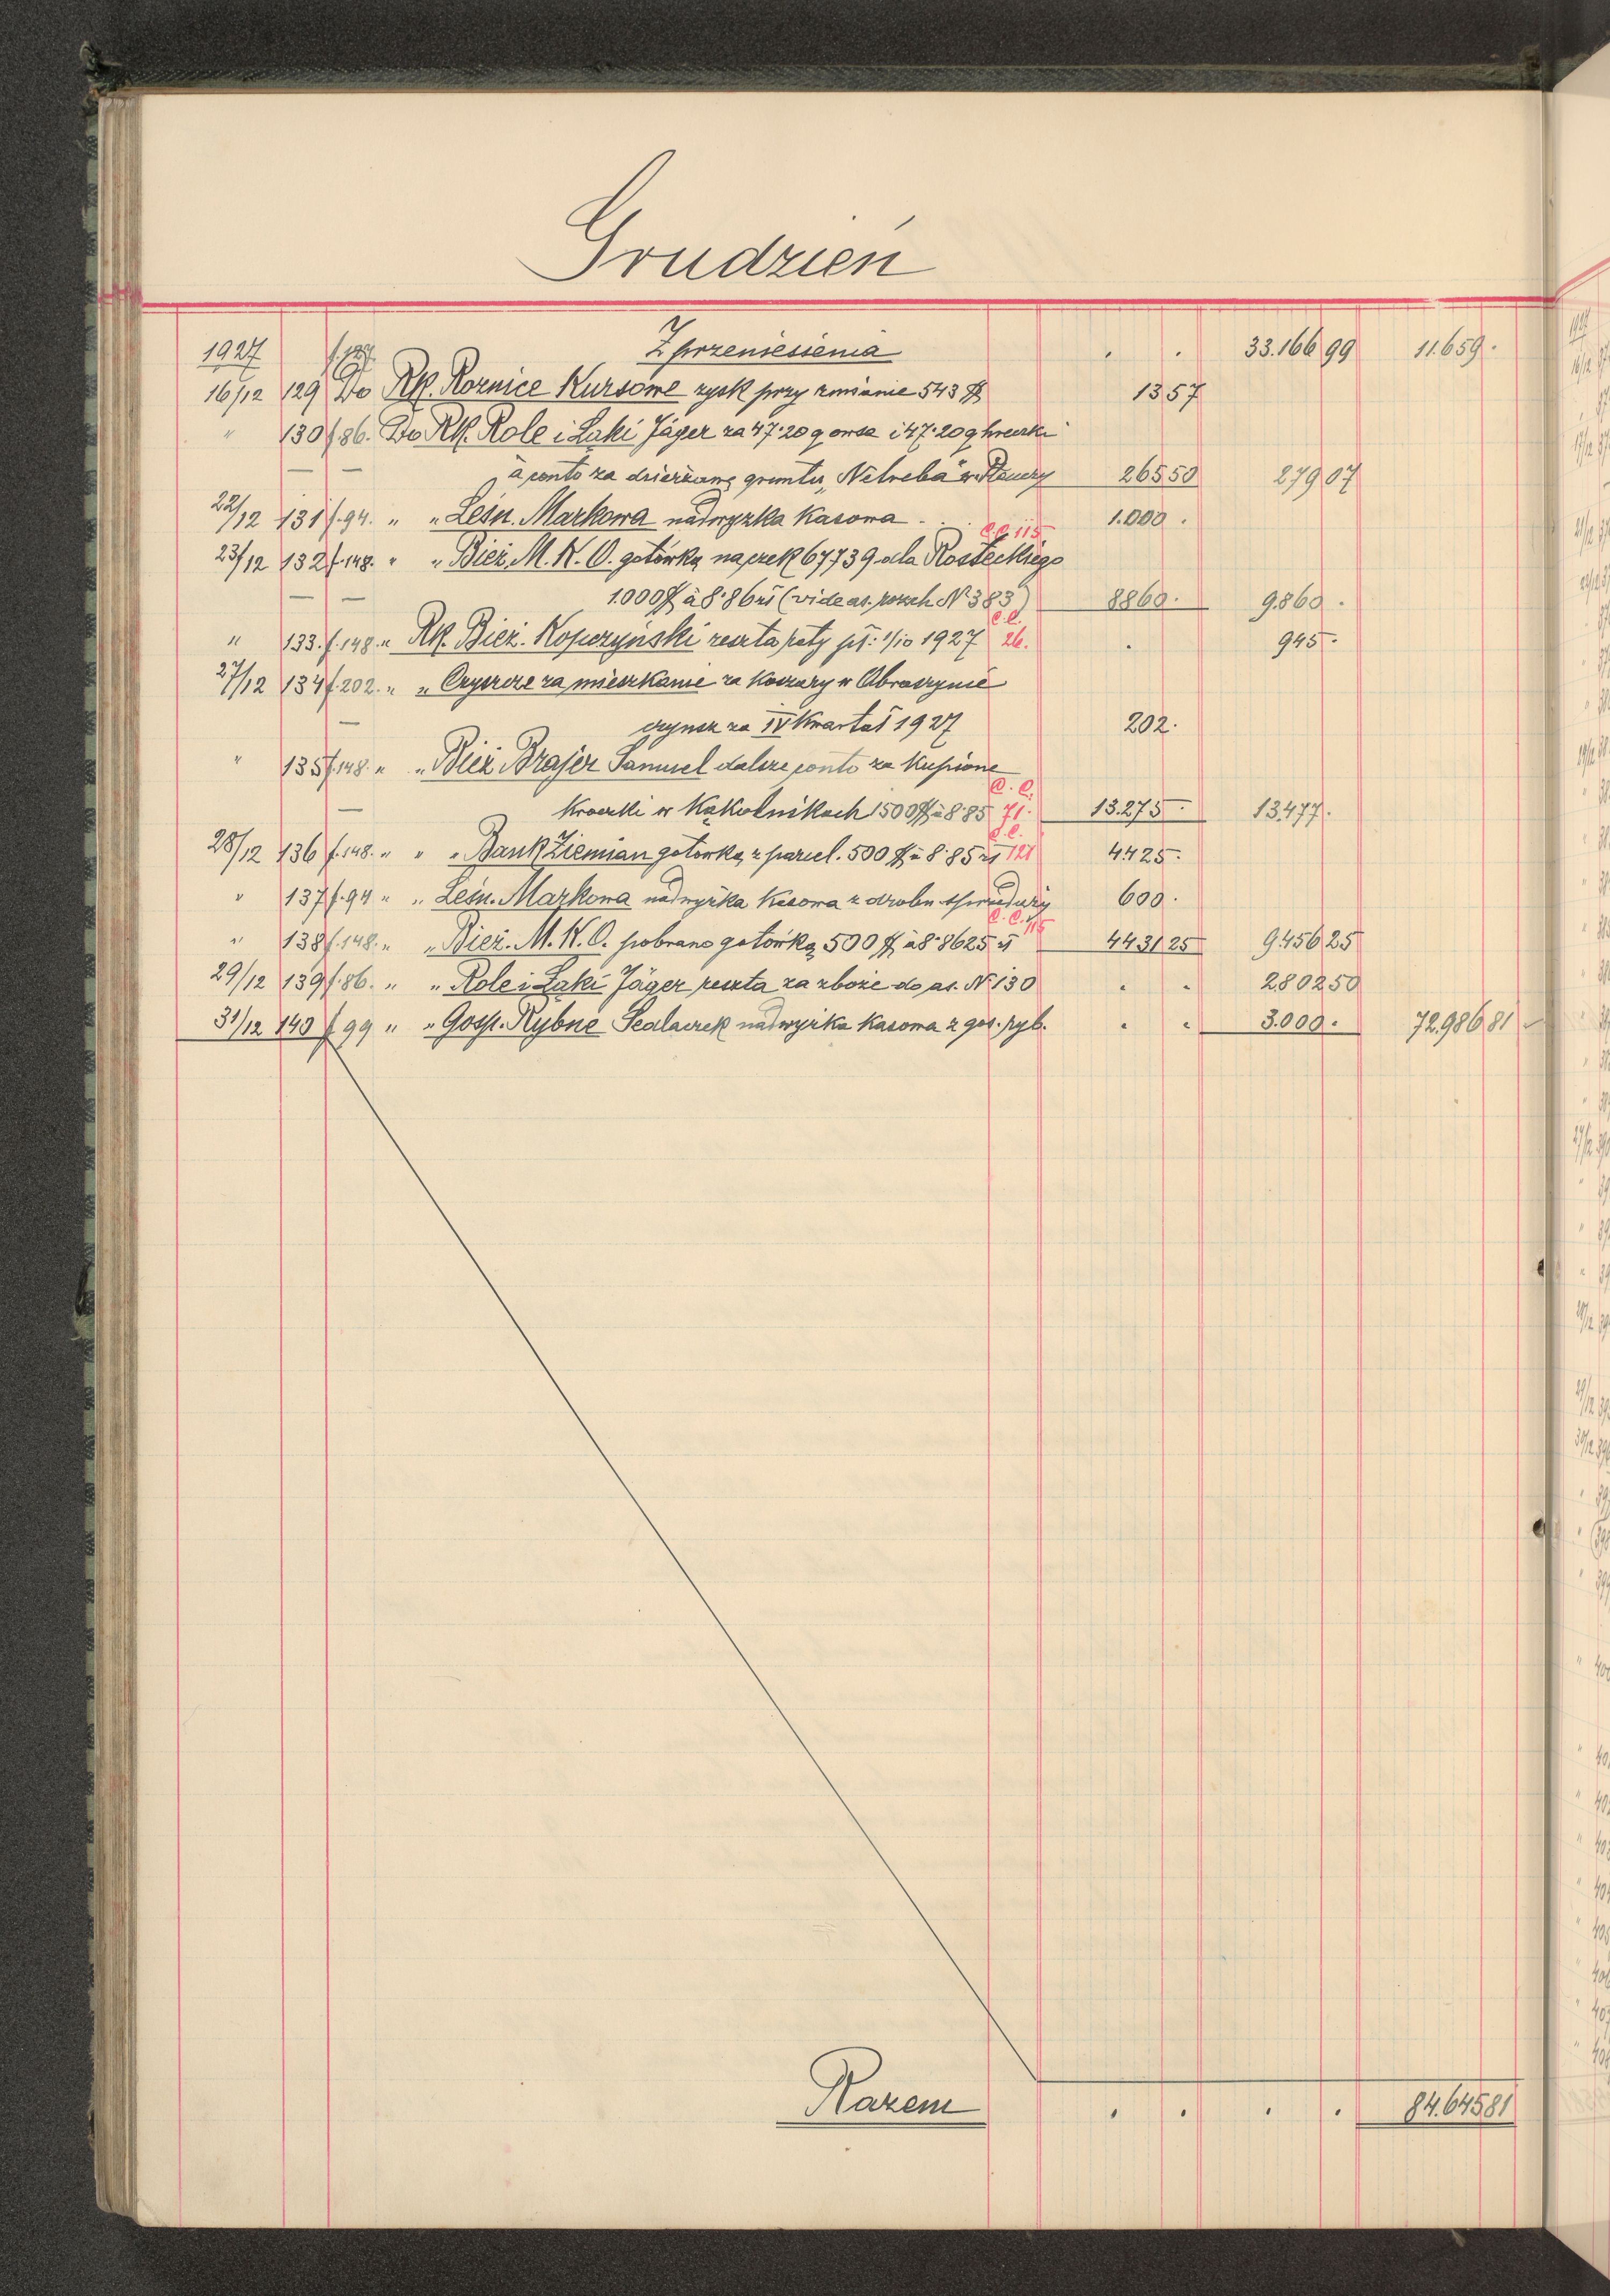 Grudzień
1927 f. 127 Z przeniesienia . . 33.166 99 11.659 .
16/12 129 Do Rk. Roznice Kursowe zysk przy zmianie 543 $ 13 57
" 130 f 86. Do Rk. Role i Łąki Jäger za 47·20 q owsa i 47·20 q hreczki
à conto za dzierżawę gruntu „Netreba" w 2655 50 2.799 07
22/12 131 f. 94. " " Leśn. Markowa nadwyżka Kasowa . . 1.000 .
C.C. 115
23/12 132 f. 148. " " Bież. M. K. O. gotówką na czek 67739 dla Rosteckiego
1.000 $ à 8·86 zł (vide as. rozch № 383) 8860 . 9.860 .
C.C.
" 133. f. 148. " Rk. Bież. Kopczyński reszta raty pł: 1/10 1927 26. . 945 .
27/12 134 f. 202. " " Czynsze za mieszkanie za Koszary w Obroszynie
czynsz za IV Kwartał 1927 202 .
" 135 f. 148. " " Bież Brajer Samuel dalsze conto za Kupione
C. C.
Kroczki w Kąkolnikach 1500 $ à 8·85 71. 13.275 . 13.477 .
C.C.
28/12 136 f. 148. " " " Bank Ziemian gotówką z parcel. 500 $ à 8·85 zł 121 4.425 .
" 137 f. 94 " " Leśn. Markowa nadwyżka Kasowa z drobn. sprzedaży 600 .
C. C. 115
" 138 f. 148. " " Bież. M. K. O. pobrano gotówką 500 $ à 8·8625 zł 4.431 25 9.456 25
29/12 139 f. 86. " " Role i Łąki Jäger reszta za zboże do as. № 130 . . 2.802 50
31/12 140 f 99 " " Gosp. Rybne Sedlaczek nadwyżka Kasowa z gos. ryb. . . 3.000 . 72.986 81
Razem . . . . 84.645 81